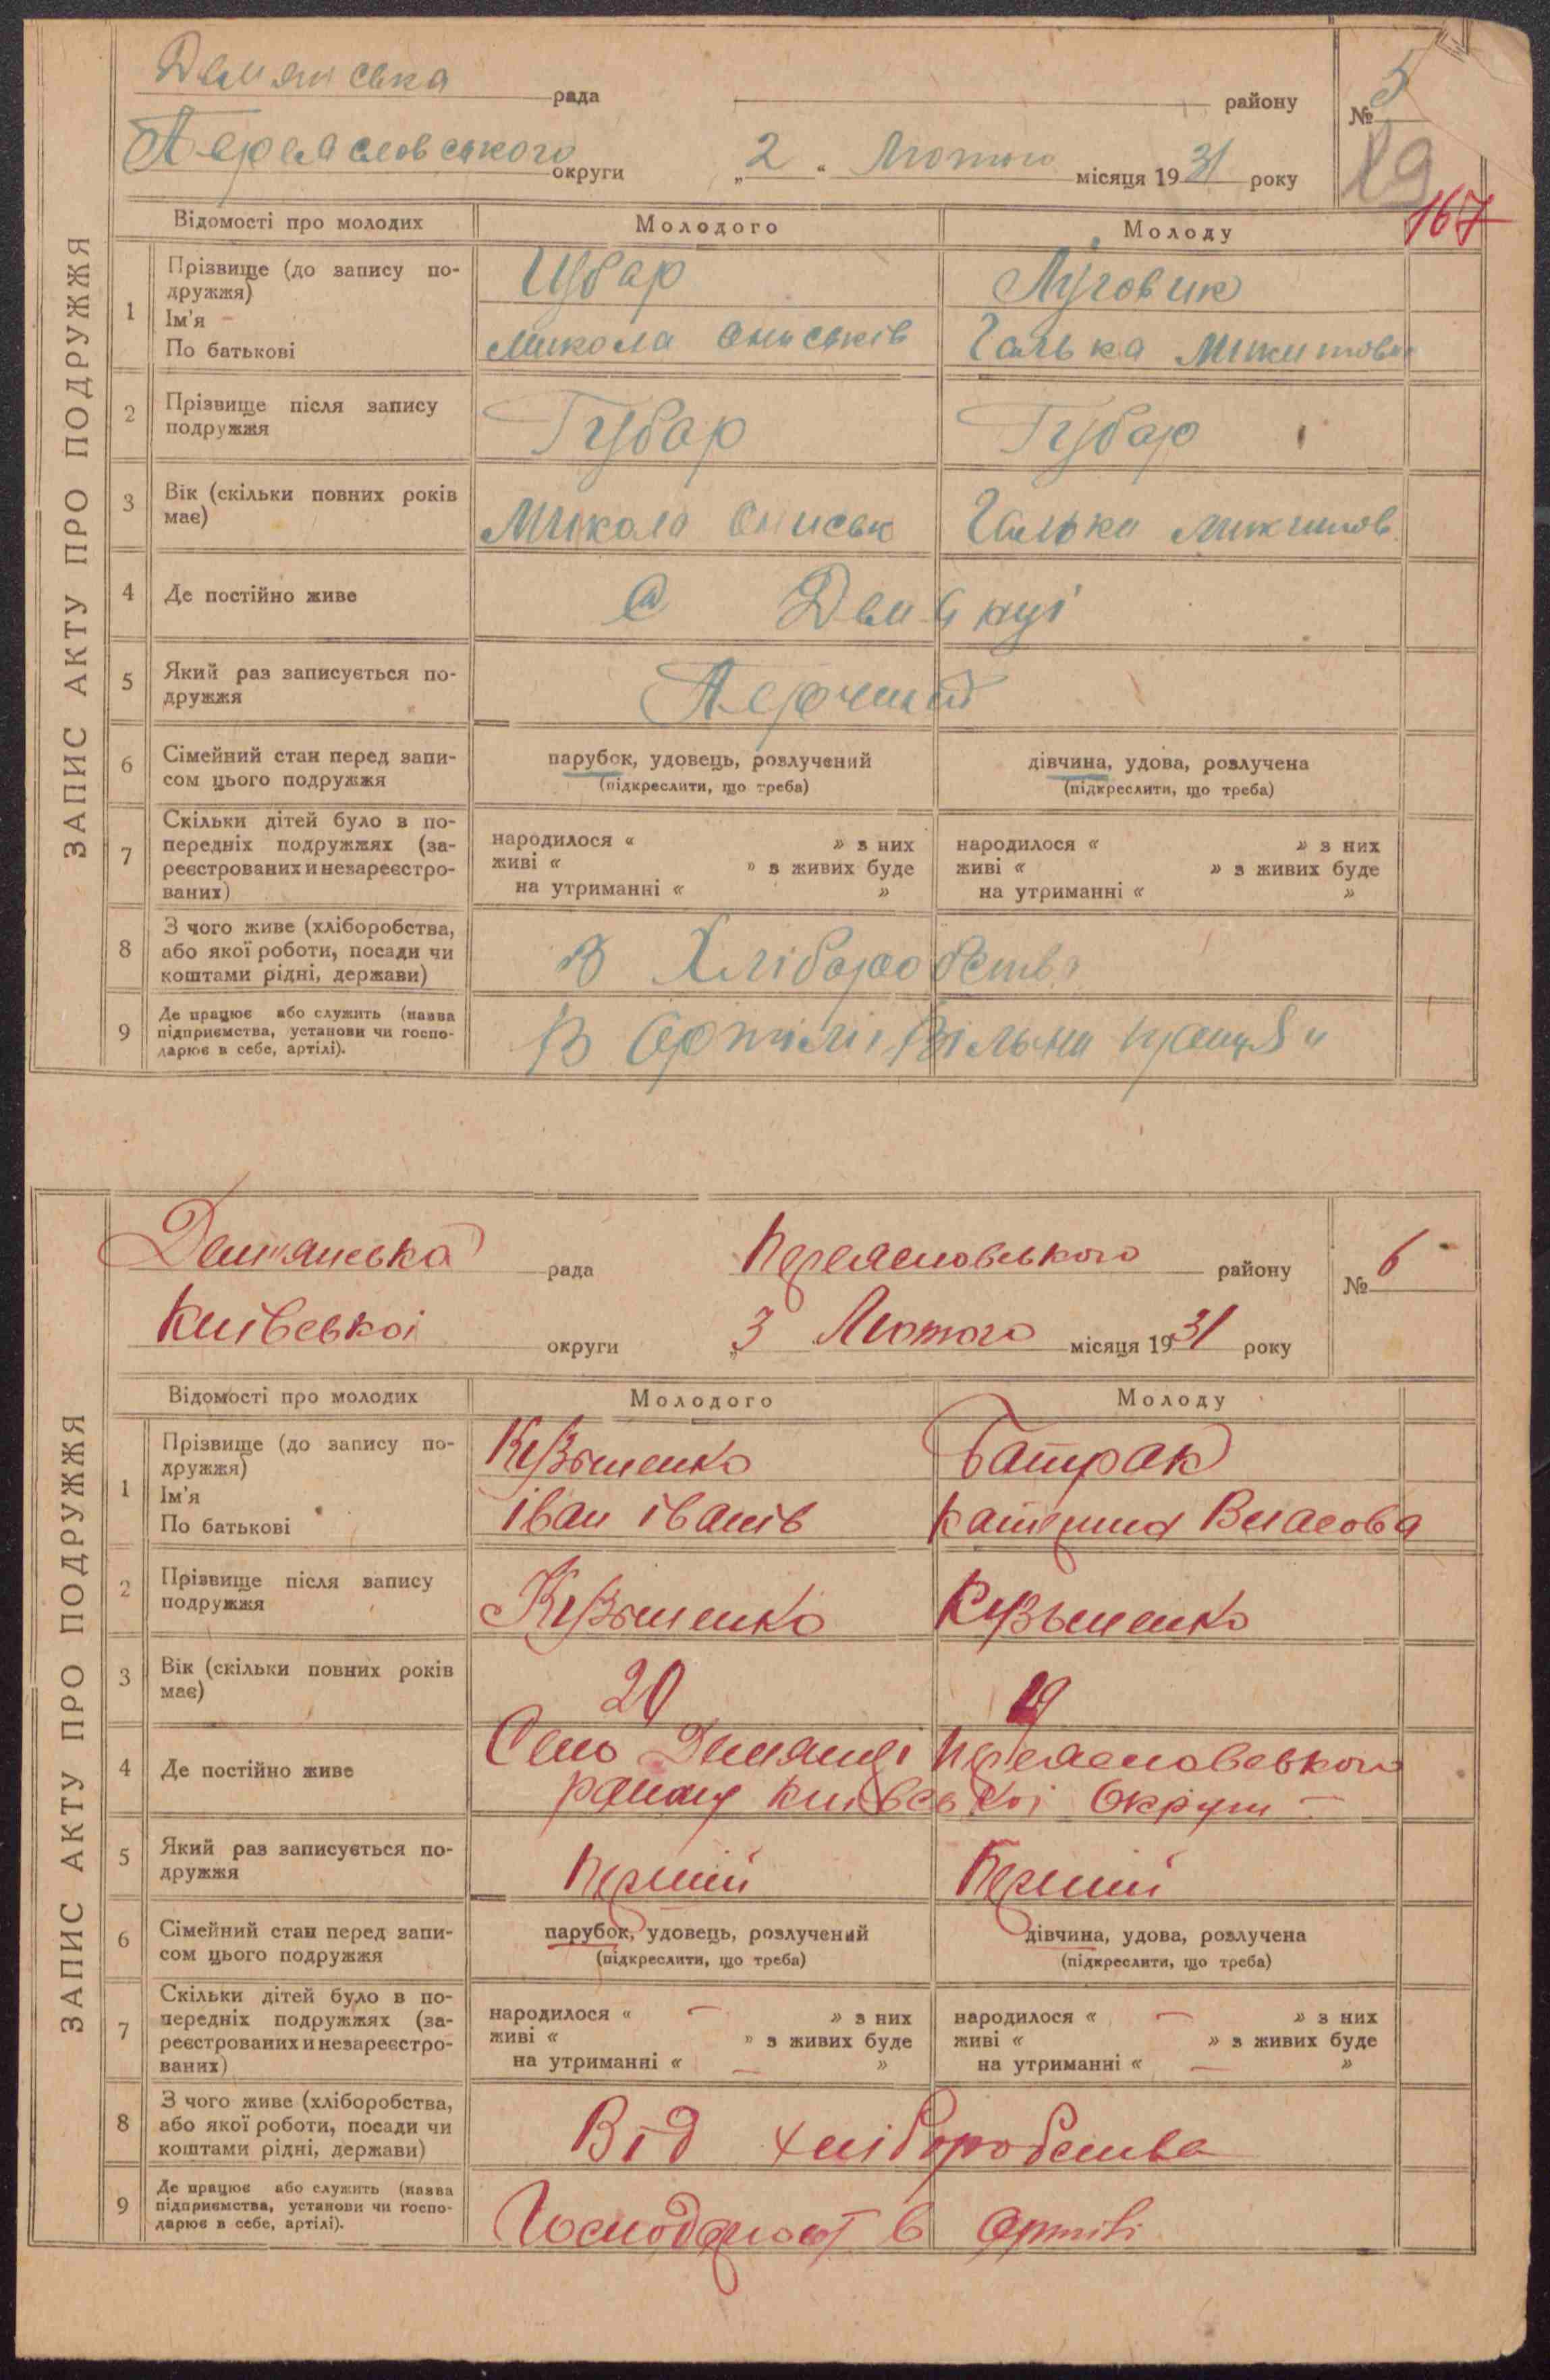 ЗАПИС АКТУ ПРО ПОДРУЖЖЯ
Демянська рада району № 5
Переяславського округи „2“ Лютого місяця 1931 року 19
167
Відомості про молодих Молодого Молоду
1 Прізвище (до запису по-
дружжя)
Ім'я
По батькові
Губар Луговик
Микола Ониськів Галька Микитов
2 Прізвище після запису
подружжя
Губар Губар
3 Вік (скільки повних років
має)
Микола Ониськ Галька Микитов
4 Де постійно живе
с Демянці
5 Який раз записується по-
дружжя
6 Сімейний стан перед запи-
сом цього подружжя
парубок, удовець, розлучений дівчина, удова, розлучена
(підкреслити, що треба) (підкреслити, що треба)
7 Скільки дітей було в по-
передніх подружжях (за-
реєстрованих и незареєстро-
ваних)
народилося « » з них народилося « » з них
живі « » з живих буде живі « » з живих буде
на утриманні « » на утриманні « »
8 З чого живе (хліборобства,
або якої роботи, посади чи
коштами рідні, держави)
З Хліборобства
9 Де працює або служить (назва
підприємства, установи чи госпо-
дарює в себе, артілі).
В Артілі Вільна праця"
ЗАПИС АКТУ ПРО ПОДРУЖЖЯ
Демянська рада Переясловського району № 6
Київської округи „3 Лютого місяця 1931 року
Відомості про молодих Молодого Молоду
1 Прізвище (до запису по-
дружжя)
Ім'я
По батькові
Кузьменко Батрак
Іван Іванів Катерина Власова
2 Прізвище після запису
подружжя
Кузьменко Кузьменко
3 Вік (скільки повних років
має)
20 19
4 Де постійно живе
Село Демянці Переясловського
району Київської Округи —
5 Який раз записується по-
дружжя
Перший Перший
6 Сімейний стан перед запи-
сом цього подружжя
парубок, удовець, розлучений дівчина, удова, розлучена
(підкреслити, що треба) (підкреслити, що треба)
7 Скільки дітей було в по-
передніх подружжях (за-
реєстрованих и незареєстро-
ваних)
народилося « — » з них народилося « — » з них
живі « » з живих буде живі « » з живих буде
на утриманні « — » на утриманні « — »
8 З чого живе (хліборобства,
або якої роботи, посади чи
коштами рідні, держави)
Від хліборобства
9 Де працює або служить (назва
підприємства, установи чи госпо-
дарює в себе, артілі).
в артілі